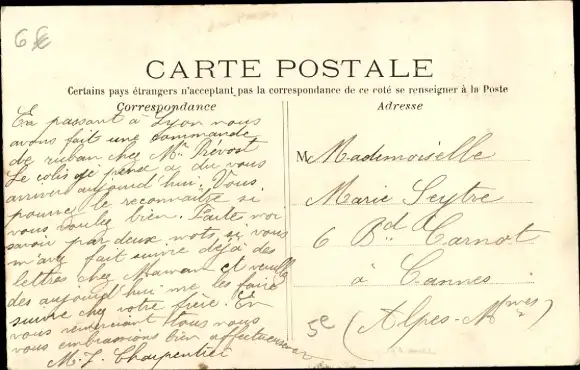 6€
CARTE POSTALE
Certains pays étrangers n'acceptant pas la correspondance de ce coté se renseigner à la Poste
Correspondance
En passant à Lyon nous
avons fait une commande
de ruban chez Mr Prévost
Le colis je pense a du vous
arriver aujourd'hui. Vous
pouvez le reconnaitre si
vous voulez bien. Faite moi
savoir par deux mots si vous
m'avez fait suivre déjà des
lettres chez Maman et veuillez
des aujourd'hui me les faire
suivre chez votre frère. En
vous remerciant tous nous
vous embrassons bien affectueusement
M. J. Charpentier
Adresse
M Mademoiselle
Marie Seytre
6 Bd Carnot
à Cannes
(Alpes-Mmes)
5e